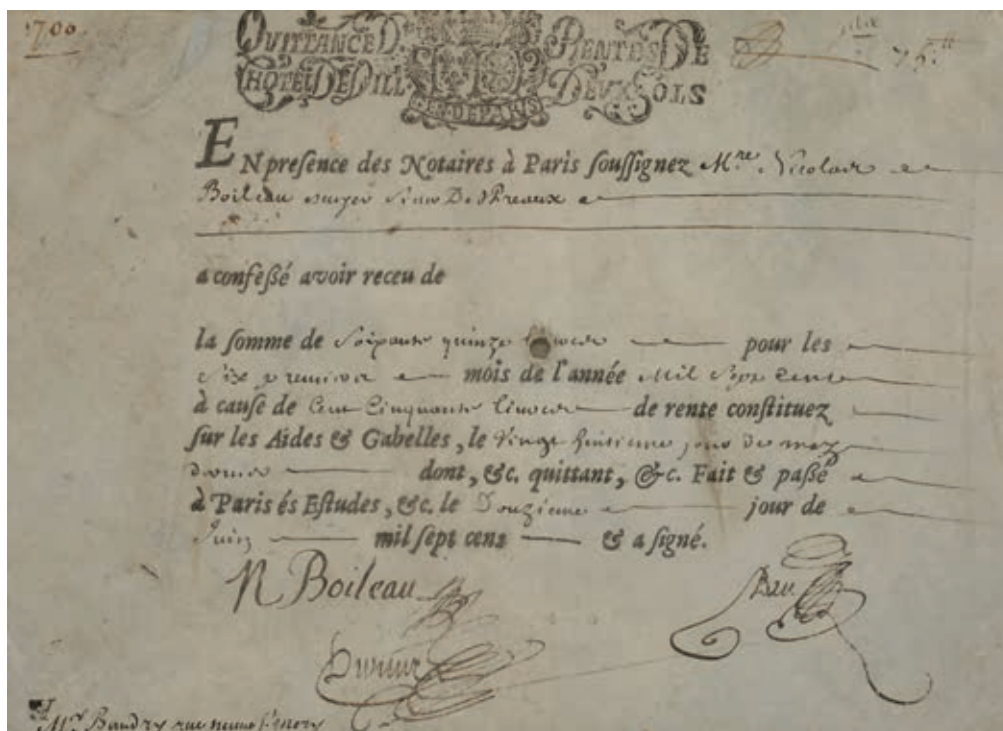 1700.
QUITTANCE D. RENTES DE
L'HOTEL DE VILL DEUX SOLS
LE DE PARIS
75.tt
EN preſence des Notaires à Paris ſouſſignez M.re Nicolas
Boileau Sieur Despreaux
a confeßé avoir receu de
la ſomme de Soixante quinze livres pour les
Six premiers mois de l'année Mil Sept Cent
à cauſe de Cent Cinquante livres de rente conſtituez
ſur les Aides & Gabelles, le Vingt huitieme jour de may
dernier dont, &c. quittant, &c. Fait & paßé
à Paris és Eſtudes, &c. le Douzieme jour de
Juin mil ſept cens & a ſigné.
N Boileau
M.r Baudry rue neuve